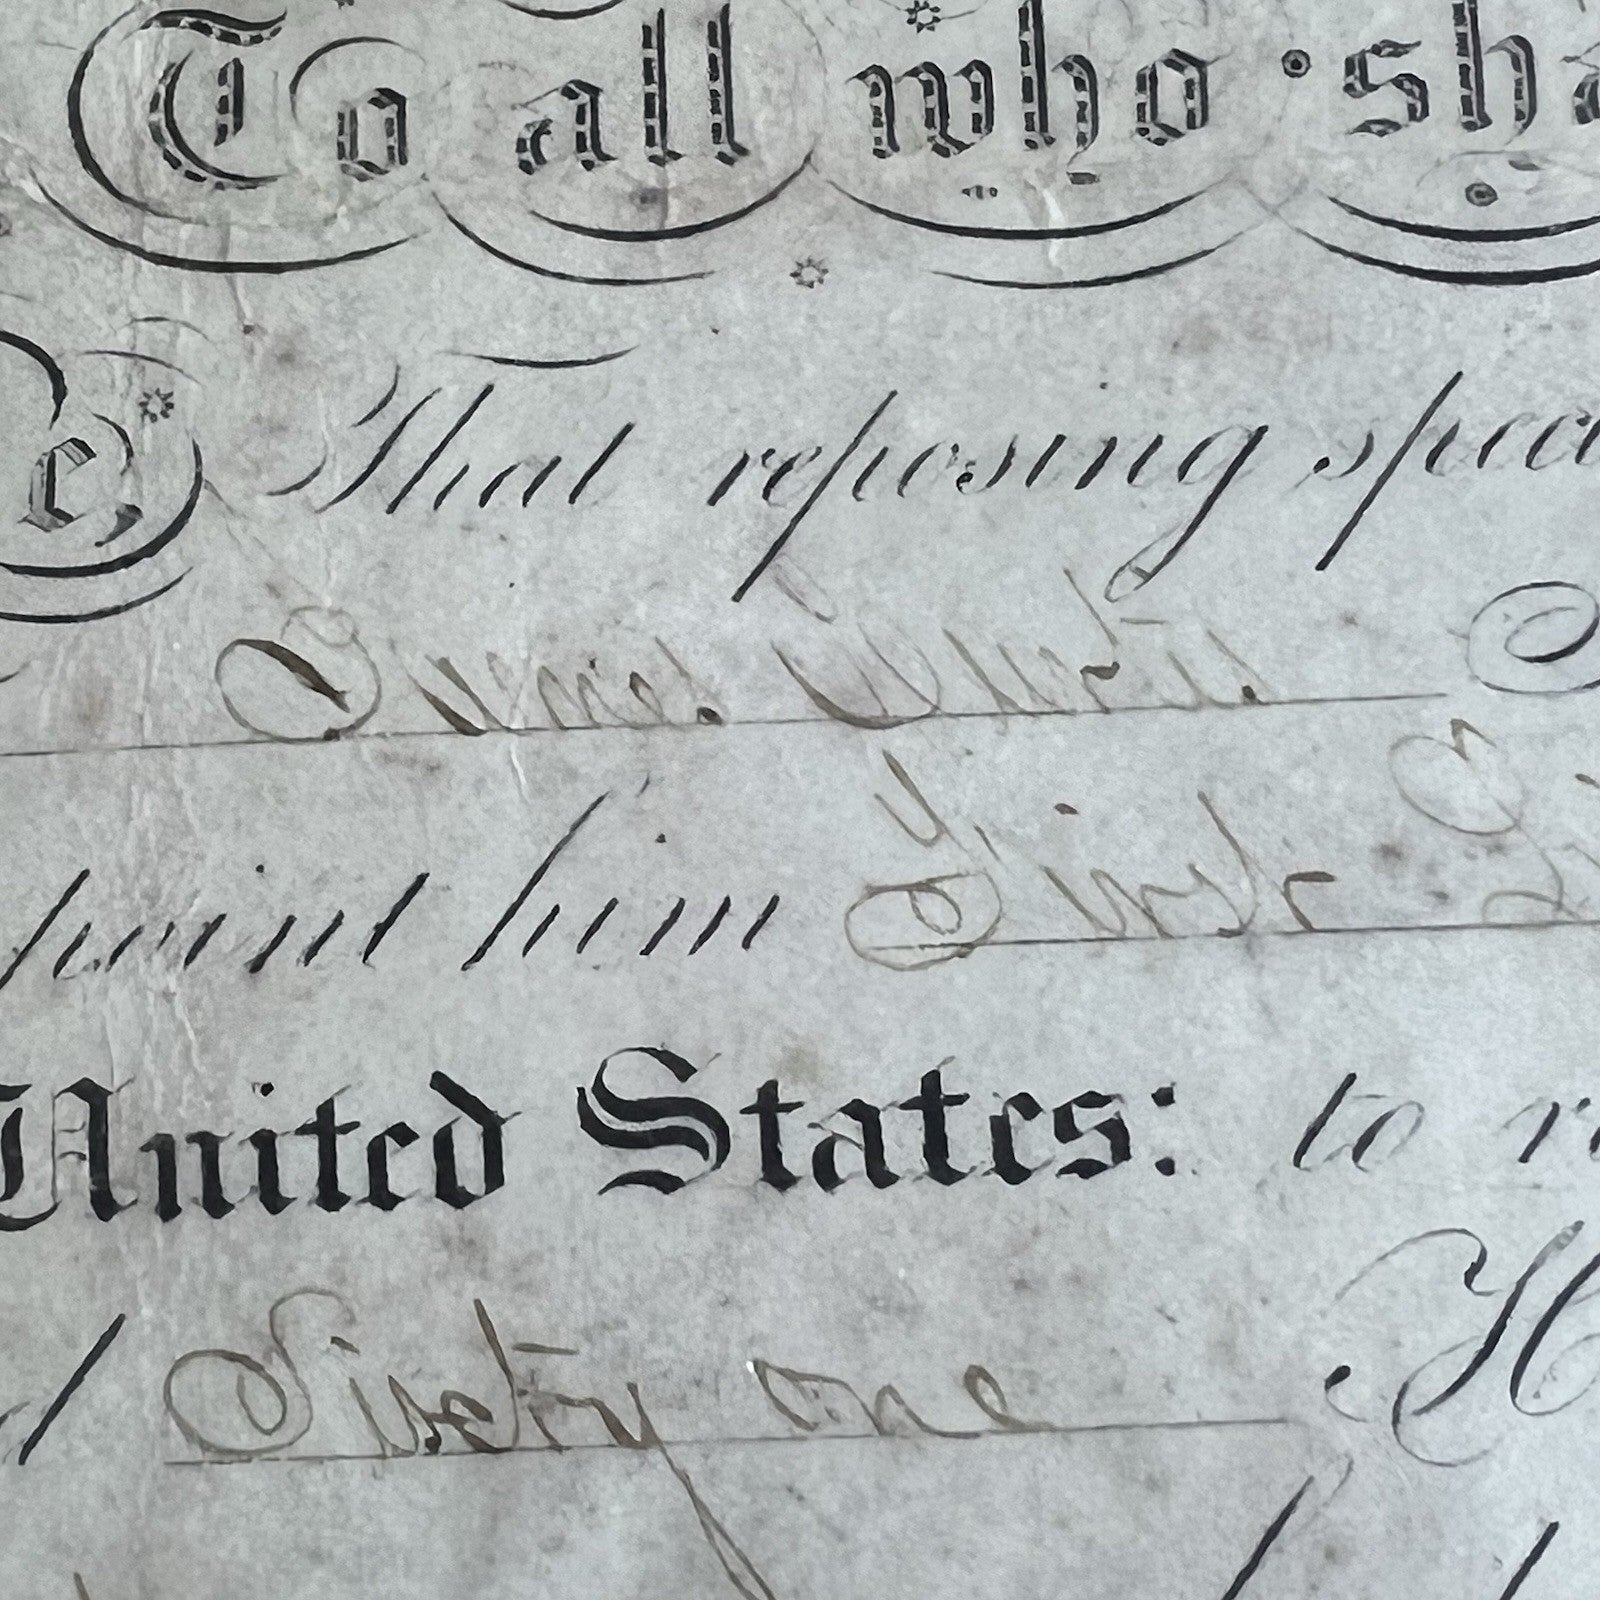 To all who sha
e, That reposing spec
James Curtis
point him First Li
United States: to r
d Sixty one H